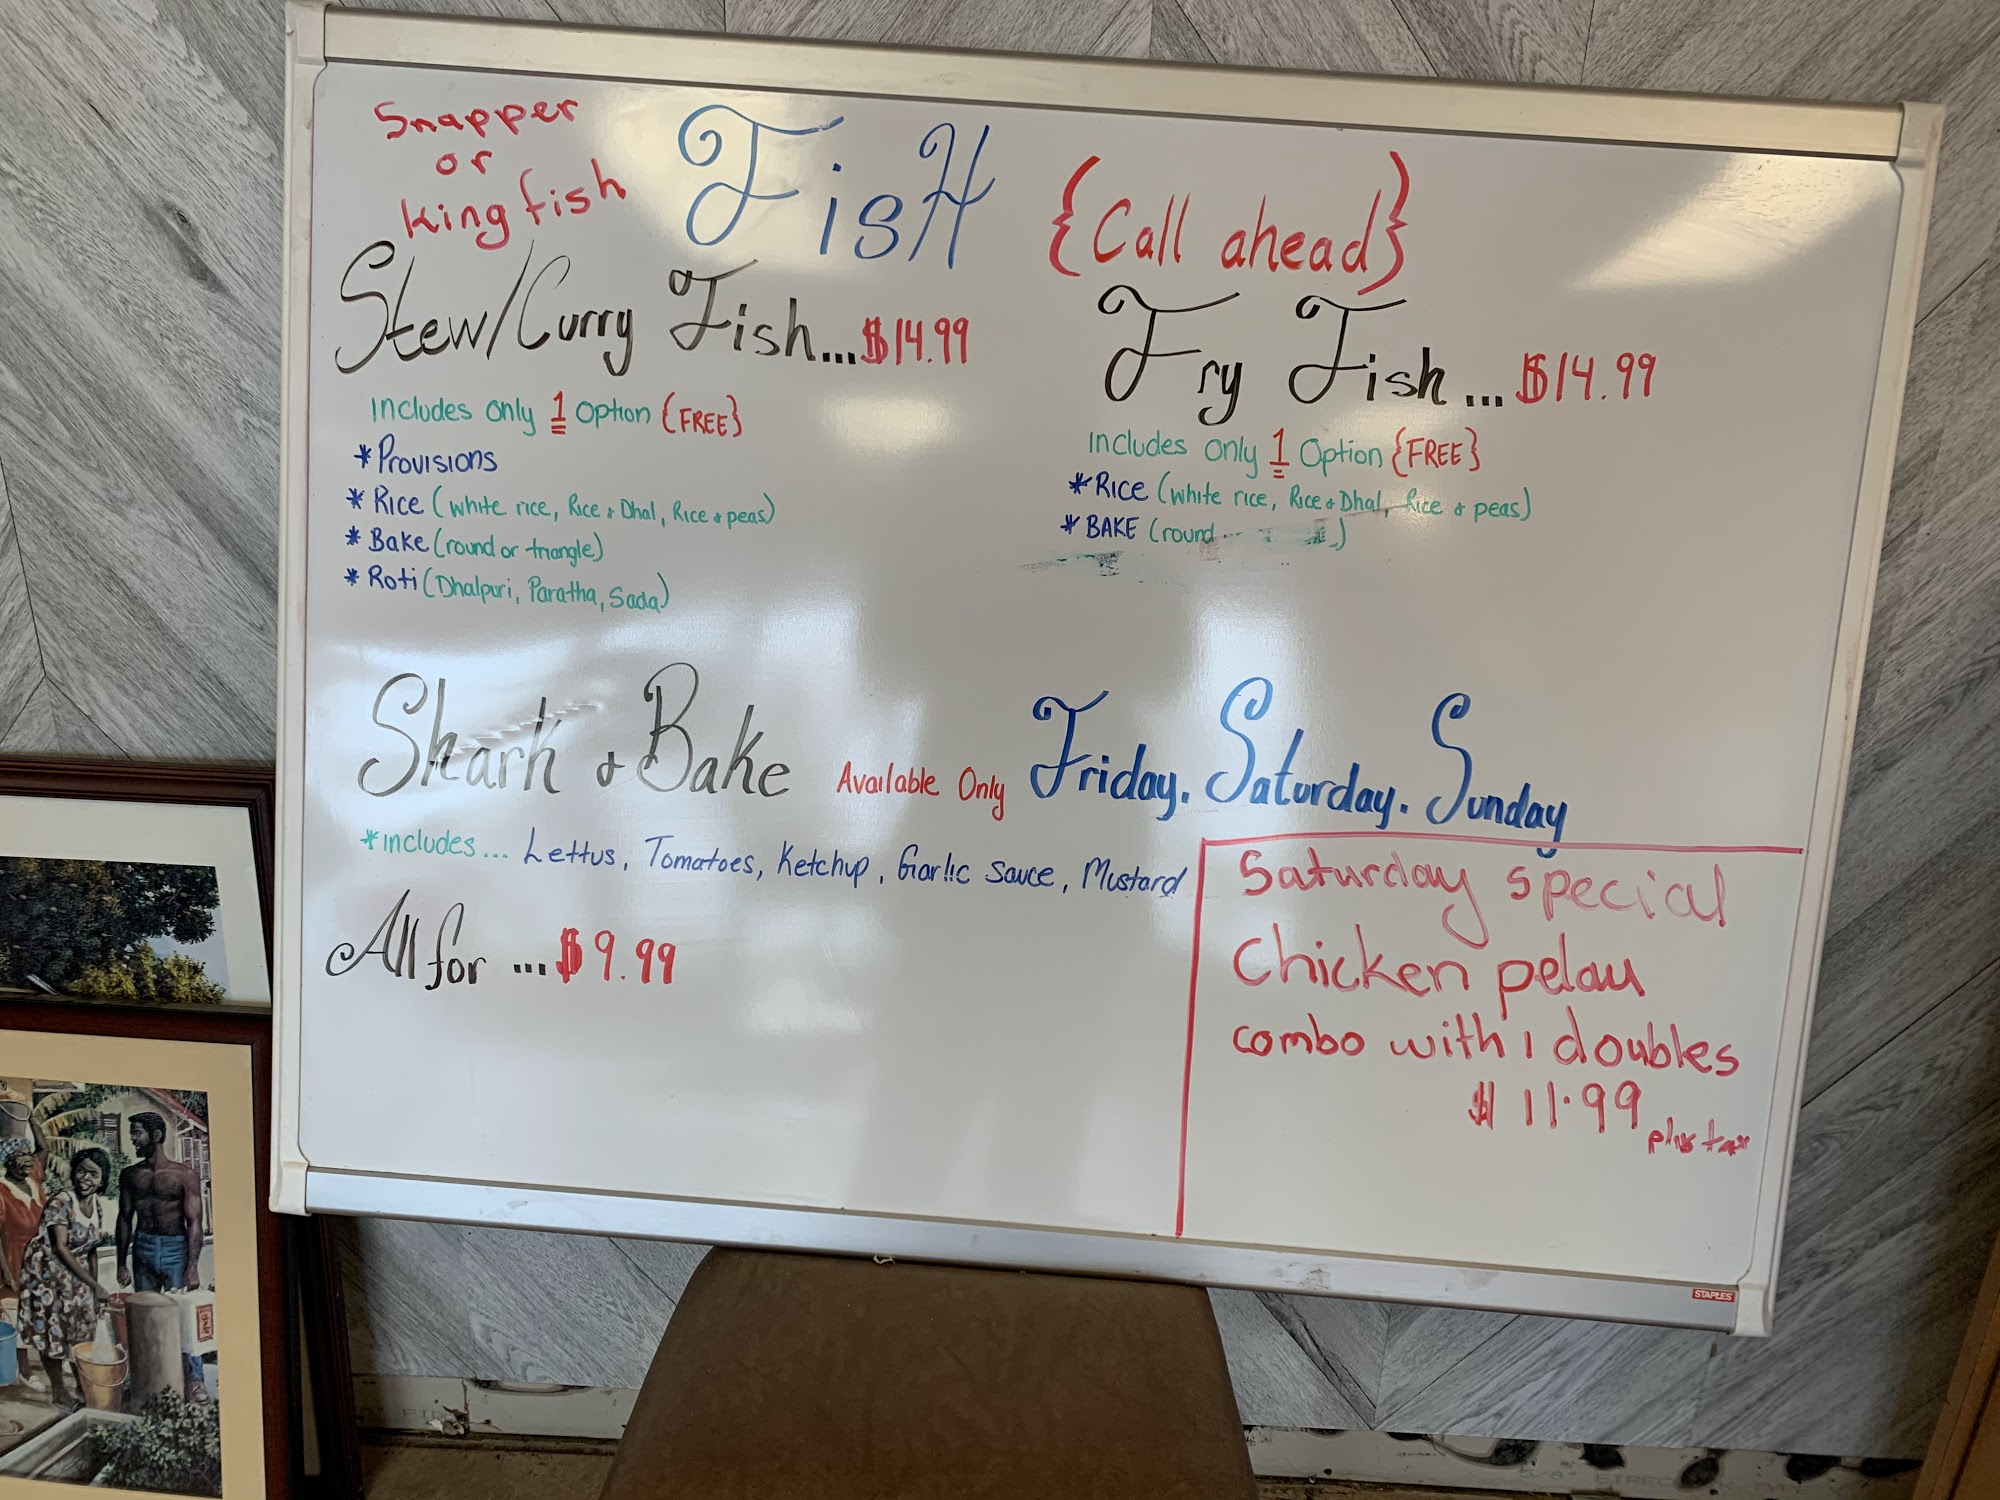 Snapper
or
kingfish
FisH
{Call ahead}
Stew/Curry Fish...$14.99
Includes Only 1 Option {FREE}
*Provisions
*Rice (white rice, Rice & Dhal, Rice & peas)
*Bake (round or triangle)
*Roti (Dhalpuri, Paratha, Sada)
Fry Fish...$14.99
Includes Only 1 Option {FREE}
*Rice (white rice, Rice & Dhal, Rice & peas)
*BAKE (round )
Shark & Bake Available Only Friday. Saturday. Sunday
*includes... Lettus, Tomatoes, Ketchup, Garlic Sauce, Mustard
All for ... $9.99
Saturday special
Chicken pelau
combo with 1 doubles
$11.99
plus tax
STAPLES